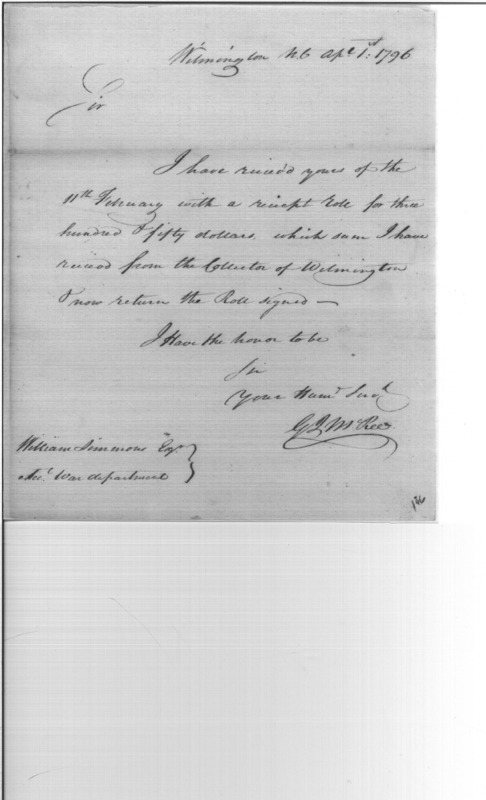 Wilmington N.C Apl 1st: 1796
Sir
I have receivd yours of the
11th February with a receipt Roll for three
hundred & fifty dollars, which sum I have
received from the Collector of Wilmington
& now return the Roll signed —
I Have the honor to be
Sir
Your Humb Servt
G J McRee
William Simmons Esqr
Acct War department